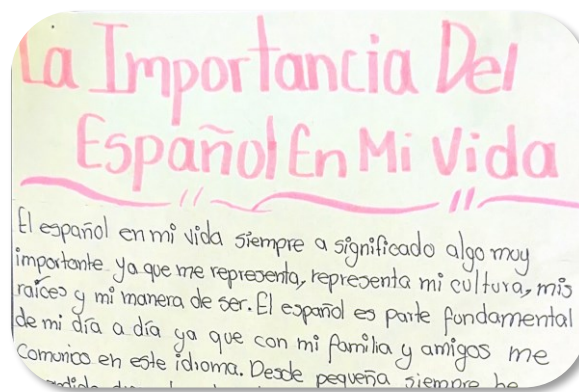 La Importancia Del
Español En Mi Vida
El español en mi vida siempre a significado algo muy
importante ya que me representa, representa mi cultura, mis
raíces y mi manera de ser. El español es parte fundamental
de mi día a día ya que con mi familia y amigos me
comunico en este idioma. Desde pequeña siempre he